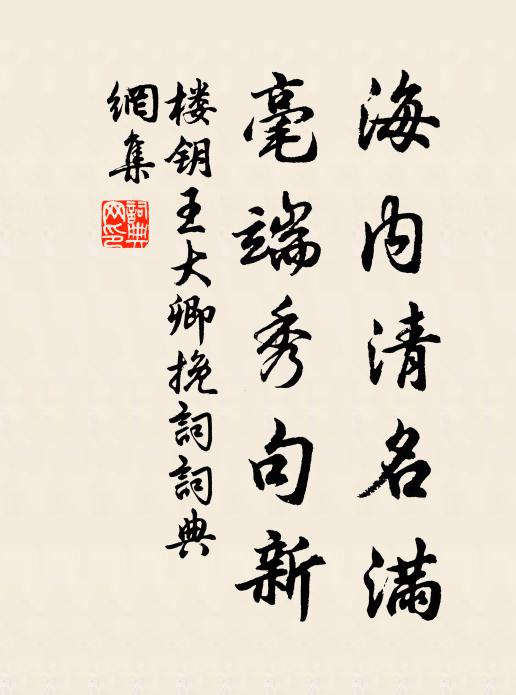 海内清名满
毫端秀句新
楼钥王大卿挽詞詞典
網集
詞典网印